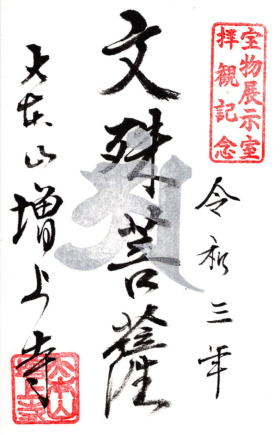 宝物展示室
拝観記念
令和三年
文殊菩薩
大本山増上寺